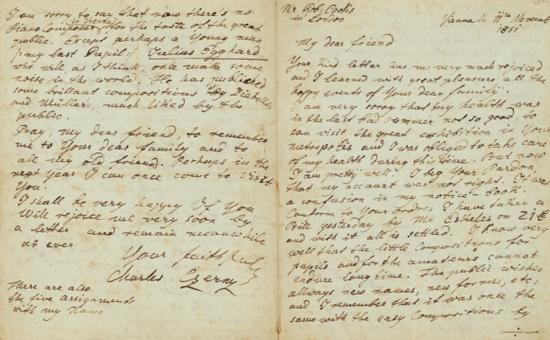 Mr Rob. Cocks
in London
Vienna 11th November
1851.
My dear friend
Your kind letter has me very much rejoiced
and I learned with great pleasures all the
happy events of Your dear family.
I am very sorry that my health was
in the last bad summer not so good, to
can visit the great exhibition in Your
metropolis and I was obliged to take care
of my health during this time. But now
I am pretty well. I beg Your Pardon
that my account was not right. It was
a confusion in my notice book.
Conform to Your orders I have taken a
yesterday Mr on 21£
and with it all is settled. I know very
well that the little Compositions for
pupils and for the amateurs cannot
endure long time. The public wishes
allways new names, new formes, etc:
and I remember that it was once the
same with the easy Compositions by
I am sorry to say that now there's no
Piano Composer for the taste of the great
public. Except perhaps a Young man
my last Pupil: Julius Egghard
who will, as I think, once make some
noise in the world. He has published
some brillant compositions by Diabelli
and Müller, much liked by the
public.
Pray, my dear friend, to remember
me to Your dear family and to
all my old friend. Perhaps in the
next year I can once come to visit
You.
I shall be very happy if You
will rejoice me very soon by
a letter and remain meanwhile
as ever
Your faithful
Charles Czerny
There are also
the five assignments
with my name